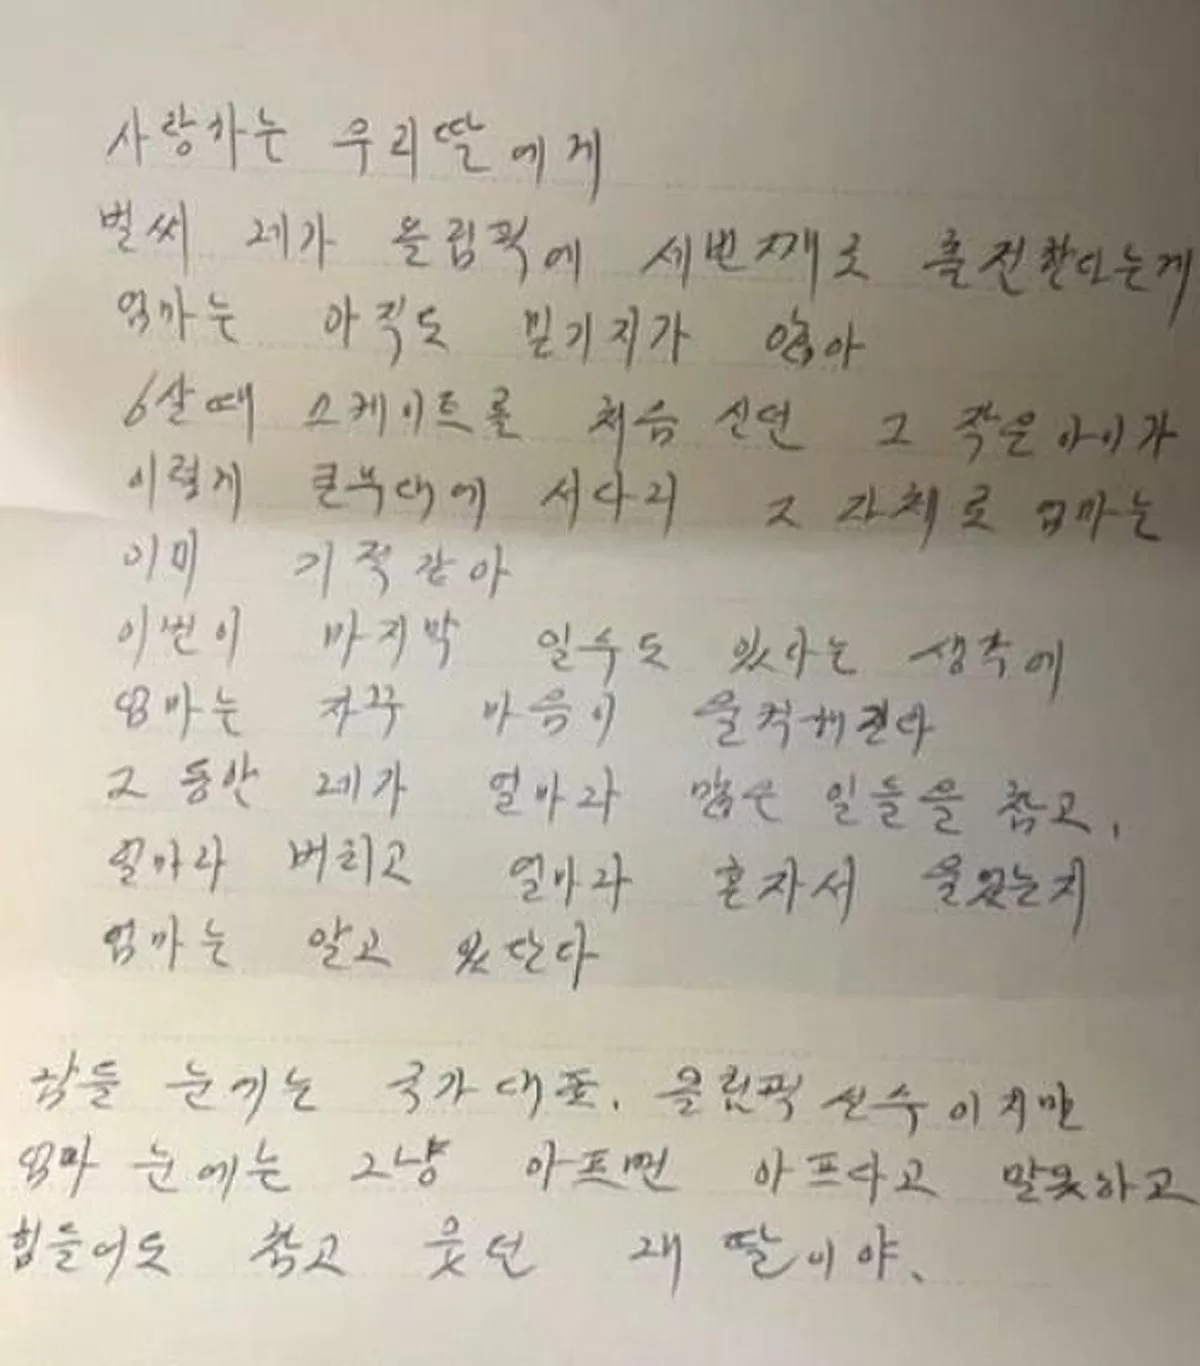 사랑하는 우리딸에게
벌써 네가 올림픽에 세번째로 출전한다는게
엄마는 아직도 믿기지가 않아
6살때 스케이트를 처음 신던 그 작은아이가
이렇게 큰무대에 서다니 그 자체로 엄마는
이미 기적같아
이번이 마지막 일수도 있다는 생각에
엄마는 자꾸 마음이 울컥해진다
그 동안 네가 얼마나 많은 일들을 참고,
얼마나 버티고 얼마나 혼자서 울었는지
엄마는 알고 있단다
남들 눈에는 국가대표. 올림픽 선수이지만
엄마 눈에는 그냥 아프면 아프다고 말못하고
힘들어도 참고 웃던 내 딸이야.